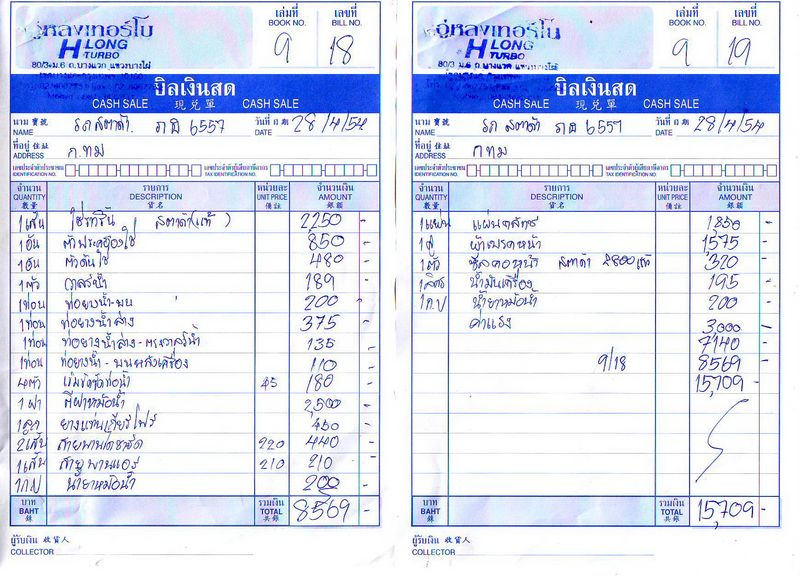 อู่หลงเทอร์โบ
H LONG
TURBO
80/3 ม.6 ถ.บางแวก แขวงบางไผ่
เล่มที่
BOOK NO.
9
เลขที่
BILL NO.
18
บิลเงินสด
CASH SALE 現兑單 CASH SALE
นาม 寶號
NAME
รถ สตาด้า 6557
วันที่ 日期
DATE
28/4/54
ที่อยู่ 住址
ADDRESS
ก.ทม
เลขประจำตัวประชาชน
IDENTIFICATION NO.
เลขประจำตัวผู้เสียภาษีอากร
TAX IDENTIFICATION NO.
จำนวน รายการ หน่วยละ จำนวนเงิน
QUANTITY DESCRIPTION UNIT PRICE AMOUNT
數量 貨名 備註 銀額
1เส้น สตาด้า(แท้) 2,250 -
1อัน ตัวประคองโซ่ 850 -
1อัน ตัวดันโซ่ 480 -
1ตัว วาลว์น้ำ 189 -
1ท่อน ท่อยางน้ำ-บน 200 -
1ท่อน ท่อยางน้ำล่าง 375 -
1ท่อน ท่อยางน้ำล่าง-ตรงวาลว์น้ำ 135 -
1ท่อน ท่อยางน้ำ-บนหลังเครื่อง 110 -
4ตัว เข็มขัดรัดท่อน้ำ 45 180 -
1ฝา ตีฝาหม้อน้ำ 2,500 -
1ลูก ยางแท่นเกียร์โฟร์ 450 -
2เส้น สายพานไดชาร์ด 220 440 -
1เส้น สายพานแอร์ 210 210 -
1ก.ป น้ำยาหม้อน้ำ 200 -
บาท
BAHT
銖
รวมเงิน
TOTAL
共銀
8569 -
ผู้รับเงิน 收貨人
COLLECTOR
อู่หลงเทอร์โบ
H LONG
TURBO
80/3 ม.6 ถ.บางแวก แขวงบางไผ่
เล่มที่
BOOK NO.
9
เลขที่
BILL NO.
19
บิลเงินสด
CASH SALE 現兑單 CASH SALE
นาม 寶號
NAME
รถ สตาด้า 6557
วันที่ 日期
DATE
28/4/54
ที่อยู่ 住址
ADDRESS
กทม
เลขประจำตัวประชาชน
IDENTIFICATION NO.
เลขประจำตัวผู้เสียภาษีอากร
TAX IDENTIFICATION NO.
จำนวน รายการ หน่วยละ จำนวนเงิน
QUANTITY DESCRIPTION UNIT PRICE AMOUNT
數量 貨名 備註 銀額
1แผ่น แผ่นคลัทช์ 1850 -
1คู่ ผ้าเบรคหน้า 1,575 -
1ตัว ซีลคอหน้า สตาด้า 2800แท้ 320 -
1ลิตร น้ำมันเครื่อง 195 -
1ก.ป น้ำยาหม้อน้ำ 200 -
ค่าแรง 3,000 -
7140 -
9/18 8569 -
15,709 -
บาท
BAHT
銖
รวมเงิน
TOTAL
共銀
15,709 -
ผู้รับเงิน 收貨人
COLLECTOR